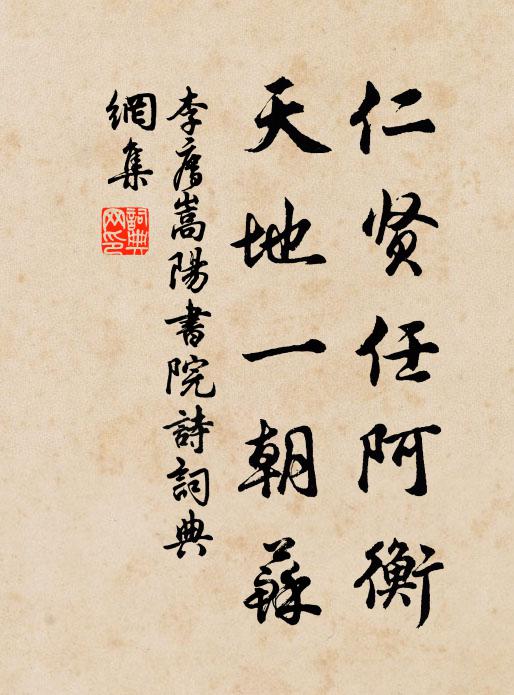 仁贤任阿衡
天地一朝蘇
李廌嵩陽書院詩詞典
網集
詞典網印